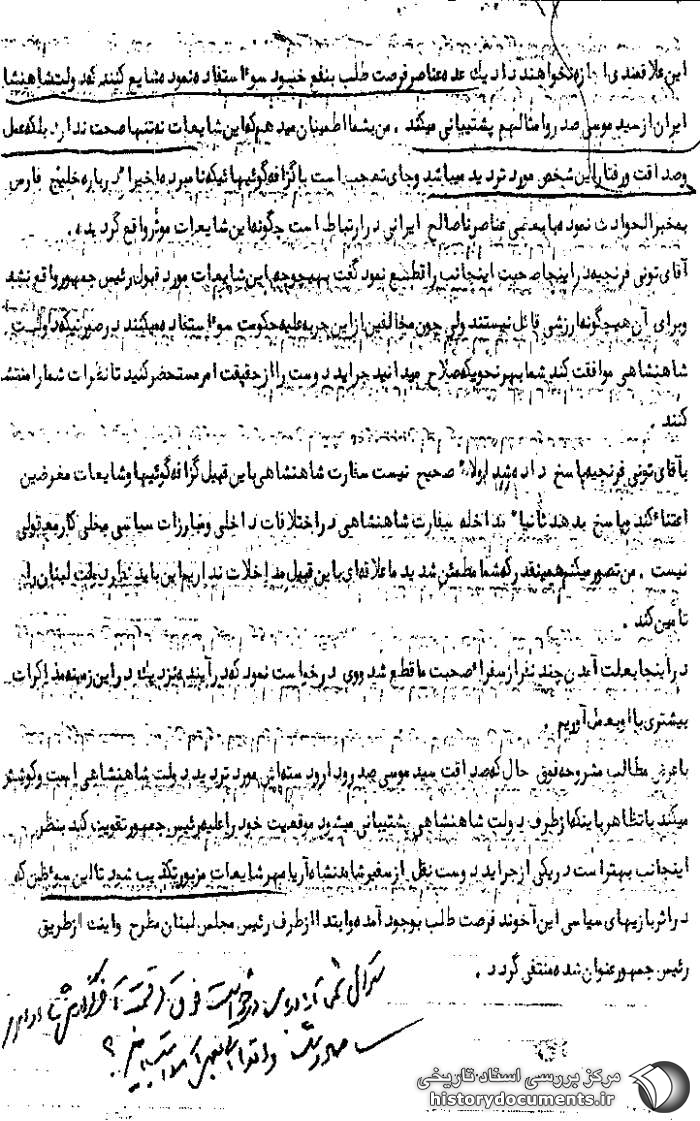 این علاقمندی اجازه نخواهند داد یک عده عناصر فرصت طلب بنفع خود سوء استفاده نموده شایع کنند که دولت شاهنشا
ایران از سید موسی صدر و امثالهم پشتیبانی میکند . من بشما اطمینان میدهم که این شایعات نه تنها صحت ندارد بلکه عمل
وصداقت ورفتار این شخص مورد تردید میباشد وجای تعجب است باگزافه گوئیهائیکه نامبرده اخیرا" درباره خلیج فارس
به خبرالحوادث نموده با بعضی عناصر ناصالح ایرانی درارتباط است چگونه این شایعات موثر واقع گردیده .
آقای تونی فرنجیه در اینجا صحبت اینجانب را قطع نمود گفت بهیچوجه این شایعات مورد قبول رئیس جمهور واقع نشد
وبرای آن هیچگونه ارزشی قائل نیستند ولی چون مخالفین از این حربه علیه حکومت سوء استفاده میکنند درصورتیکه دولت
شاهنشاهی موافقت کند شما بهر نحویکه صلاح میدانید جراید دوست را از حقیقت امر مستحضر کنید تا نظرات شما را منتشر
کنند .
بآقای تونی فرنجیه پاسخ داده شد اولا" صحیح نیست سفارت شاهنشاهی باین قبیل گزافه گوئیها و شایعات مغرضین
اعتناء کند و پاسخ بدهد ثانیا" مداخله سفارت شاهنشاهی دراختلافات داخلی ومبارزات سیاسی محلی کار معقولی
نیست . من تصور میکنم همینقدر که شما مطمئن شدید ما علاقه ای باین قبیل مداخلات نداریم این باید نظر دولت لبنان را
تامین کند .
دراینجا بعلت آمدن چند نفر از سفراء صحبت ما قطع شد ووی درخواست نمود که در آینده نزدیک دراین زمینه مذاکرات
بیشتری با او بعمل آوریم .
باعرض مطالب مشروحه فوق حال که صداقت سید موسی صدر ودارودسته اش مورد تردید دولت شاهنشاهی است وکوشش
میکند باتظاهر باینکه ازطرف دولت شاهنشاهی پشتیبانی میشود موقعیت خود را علیه رئیس جمهور تقویت کند بنظر
اینجانب بهتر است دریکی از جراید دوست نقل از سفیر شاهنشاه آریامهر شایعات مزبور تکذیب شود تا این سوء ظن که
دراثر بازیهای سیاسی این آخوند فرصت طلب بوجود آمده وابتدا ازطرف رئیس مجلس لبنان مطرح واینک ازطریق
رئیس جمهور عنوان شده منتفی گردد .
مرکز بررسی اسناد تاریخی
historydocuments.ir